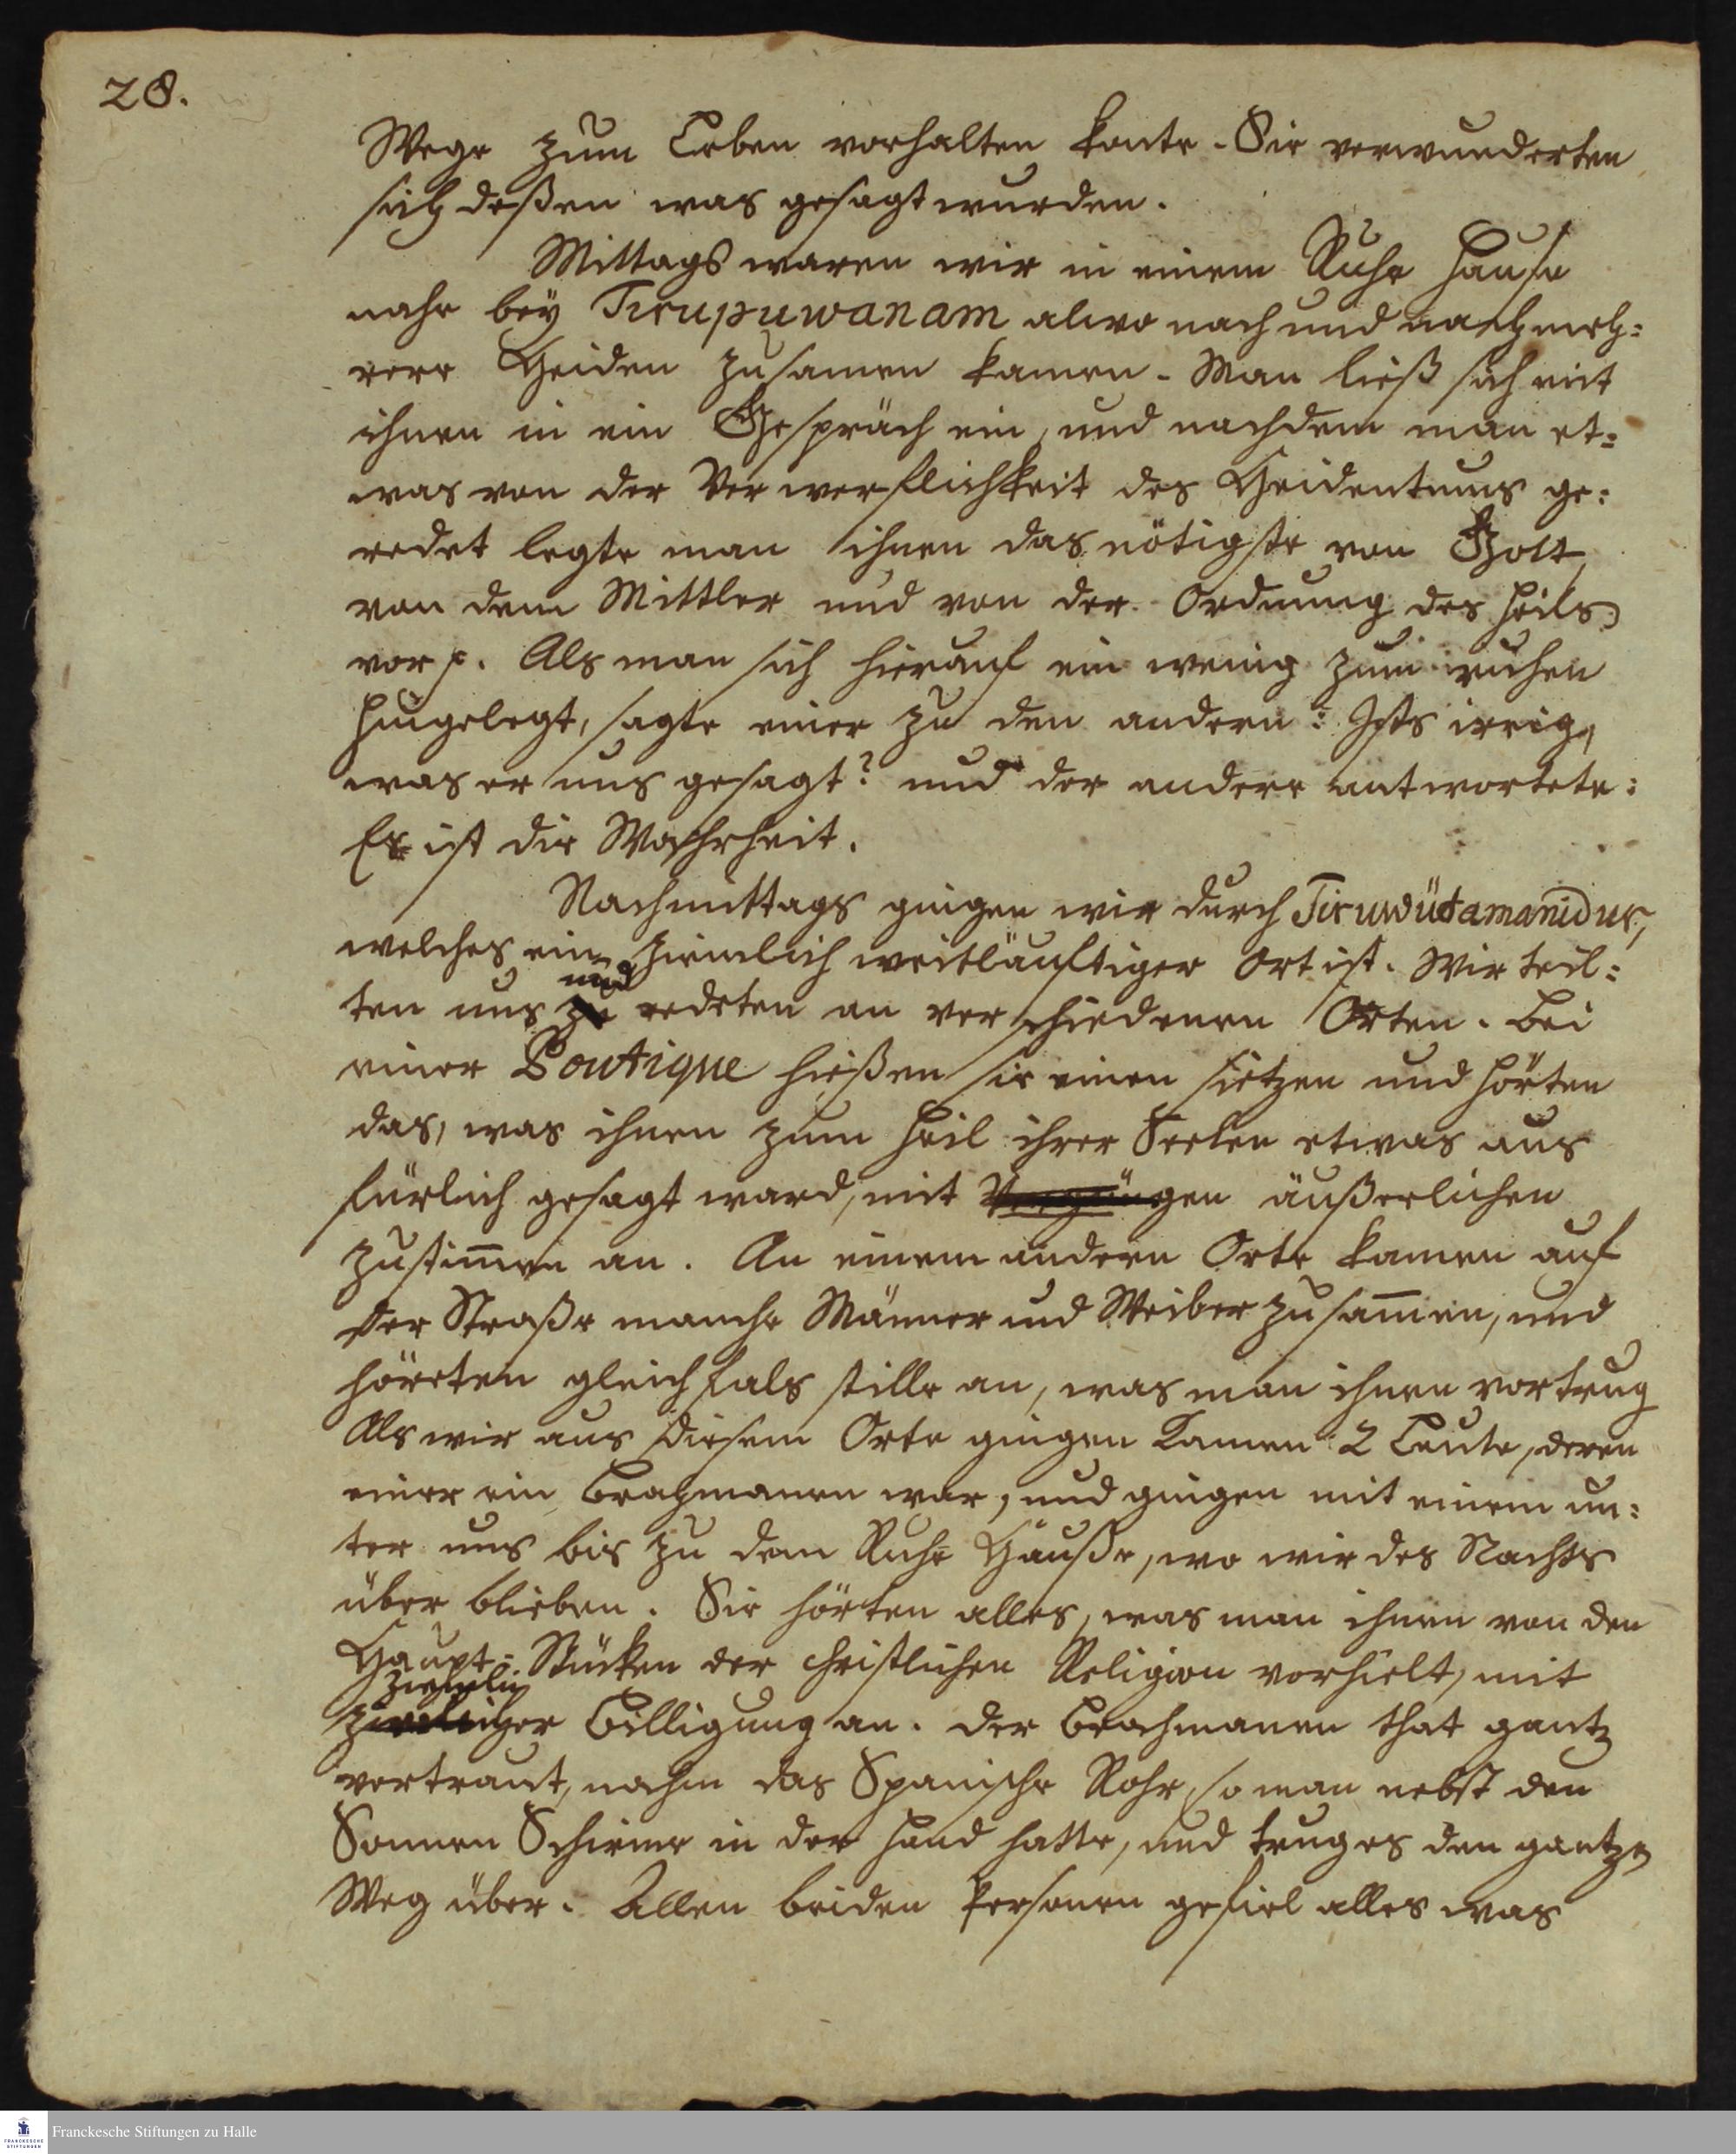 28.
Wege zum Leben vorhalten konte. Sie verwunderten
sich deßen was gesagt wurden.
Mittags waren wir in einem Ruhe Hause
nahe bey Tirupuwanam alwo nach und nach meh=
rere Heiden zusamen kamen. Man ließ sich mit
ihnen in ein Gespräch ein, und nachdem man et=
was von der Verwerflichkeit des Heidentums ge=
redet legte man ihnen das nötigste von Gott,
von dem Mittler und von der Ordnung des Heils
vor p. Als man sich hierauf ein wenig zum ruhen
hingelegt, sagte einer zu den andern: Ists irrig,
was er uns gesagt? und der andere antwortete:
Es ist die Wahrheit.
Nachmittags gingen wir durch Tiruwüdamaridur,
welches ein ziemlich weitläuftiger Ort ist. Wir teil=
und
ten uns zu redeten an verschiedenen Orten. Bei
einer Boutique hießen sie einen sietzen und hörten
das, was ihnen zum Heil ihrer Seelen etwas aus
fürlich gesagt ward, mit äußerlichen
zustim̄en an. An einem andern Orte kamen auf
der Straße manche Männer und Weiber zusam̄en, und
höreten gleichfals stille an, was man ihnen vortrug
Als wir aus diesem Orte gingen kamen 2 Leute, deren
einer ein Brahmanen war, und gingen mit einem un=
ter uns bis zu dem Ruhe Hauße, wo wir des Nachts
über blieben. Sie hörten alles, was man ihnen von den
Haupt=Stücken der christlichen Religion vorhielt, mit
ziemlich
er Billigung an. Der Brachmanen that gantz
vertraut, nahm das Spanische Rohr, so man nebst den
Sonnen Schirme in der Hand hatte, und trug es den gantzen
Weg über. Allen beiden Personen gefiel alles was
Franckesche Stiftungen zu Halle